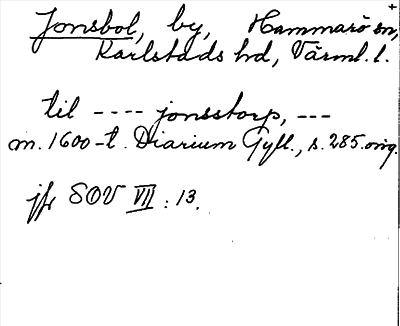 Jonsbol, by, Hammarö sn,
Karlstads hd, Värml. l.
til ---- jonsstorp, ---
m. 1600-t. Diarium Gyll., s. 285. orig.
jfr SOV VII : 13.